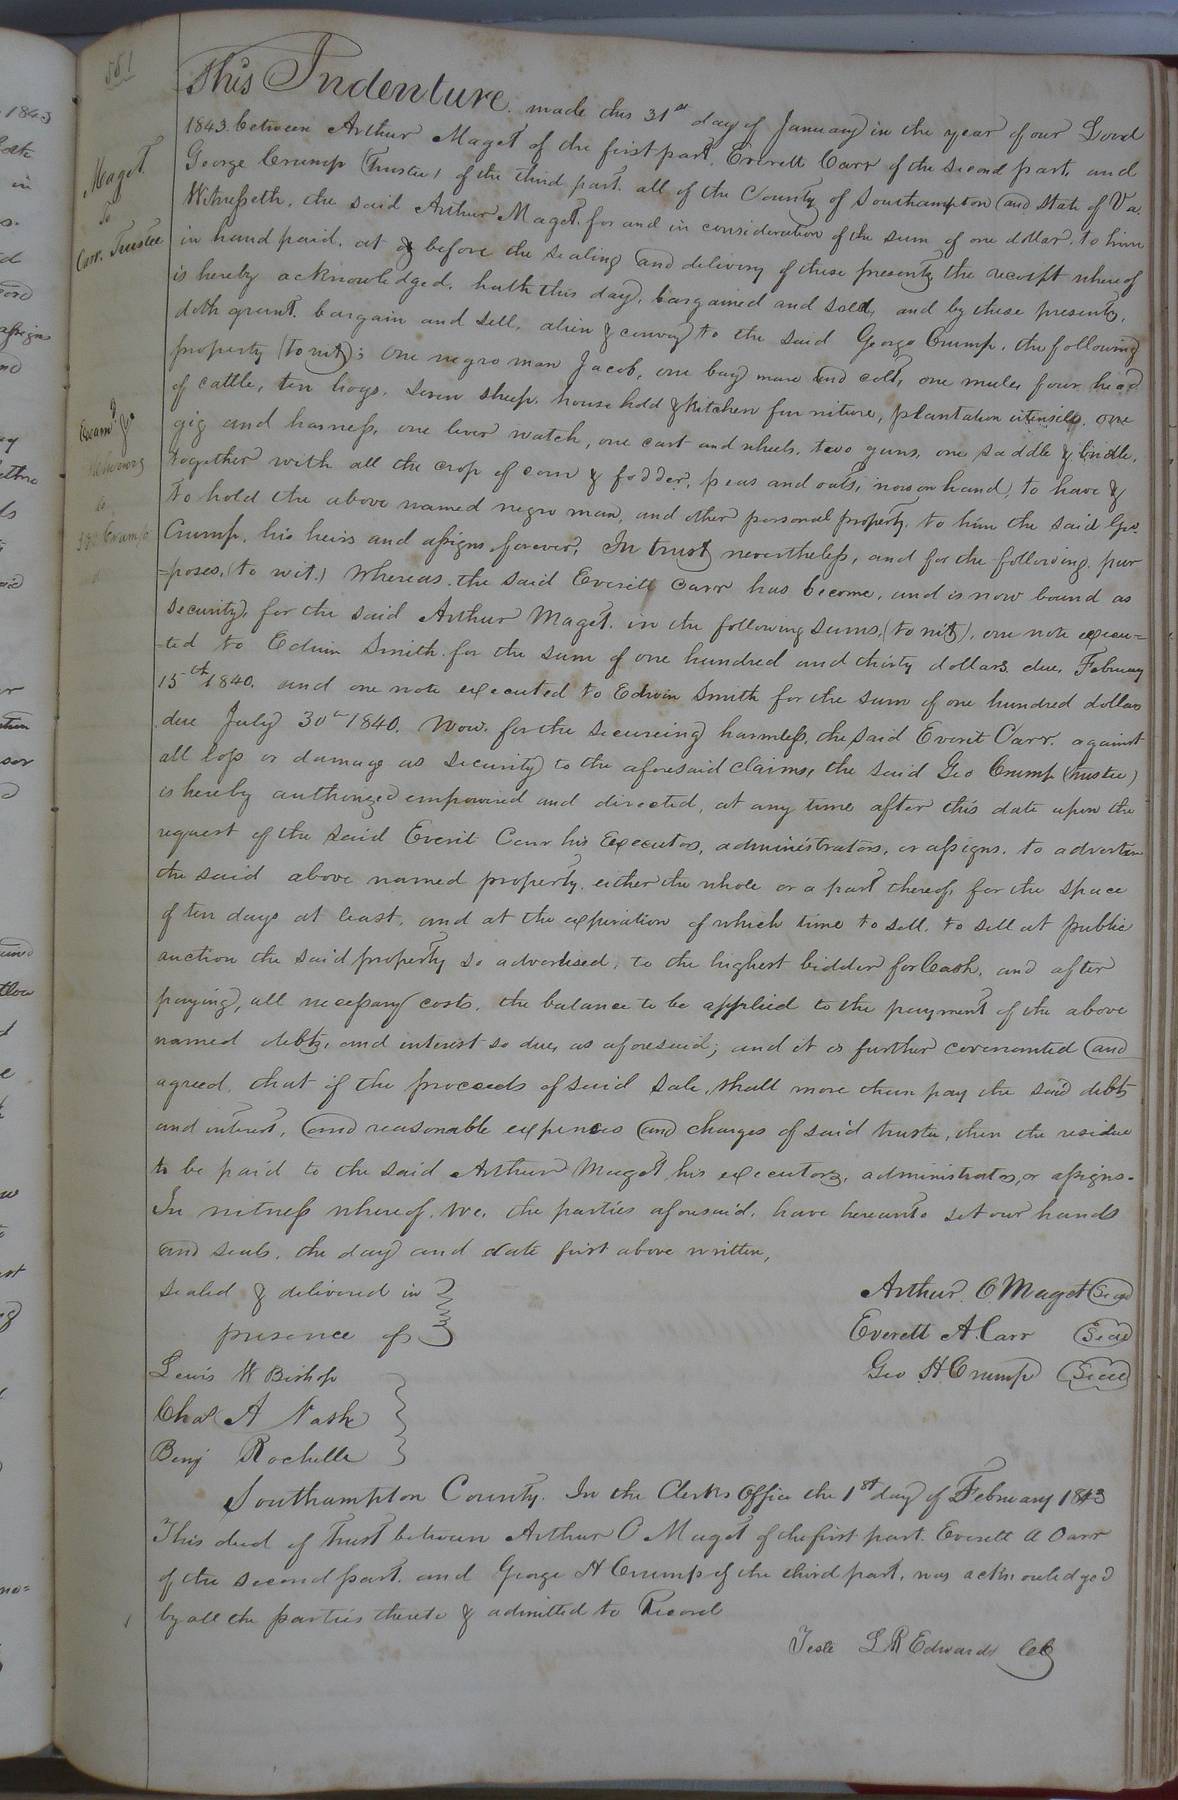 581
Maget
To
Carr. Trustee
Examd
Crump
This Indenture made this 31st day of January in the year of our Lord
1843. between Arthur Maget of the first part. Everett Carr of the second part, and
George Crump (Trustee) of the third part. all of the County of Southampton and State of Va.
Witnesseth, the said Arthur Maget. for and in consideration of the sum of one dollar. to him
in hand paid. at & before the sealing and delivery of these presents, the receipt whereof
is hereby acknowledged. hath this day, bargained and sold, and by these presents,
doth grant. bargain and sell, alien & convey to the said George Crump, the following
property (to wit); one negro man Jacob, one bay mare and colt, one mule, four head
of cattle, ten hogs, seven sheep, house hold & kitchen furniture, plantation utensils, one
gig and harness, one lever watch, one cart and wheels, two guns, one saddle & bridle,
together with all the crop of corn & fodder, peas and oats, now on hand, to have &
to hold the above named negro man, and other personal property, to him the said Geo
Crump, his heirs and assigns forever, In trust nevertheless, and for the following pur
=poses, (to wit.) Whereas. the said Everitt Carr has become, and is now bound as
security, for the said Arthur Maget. in the following sums, (to wit), one note execu=
=ted to Edwin Smith for the sum of one hundred and thirty dollars due, February
15th 1840. and one note executed to Edwin Smith for the sum of one hundred dollars
due July 30th 1840. Now. for the secureing harmless, the said Everit Carr. against
all loss or damage as security to the aforesaid claims, the said Geo Crump (trustee)
is hereby authorized empowired and directed, at any time after this date upon the
request of the said Everit Carr his Executors, administrators, or assigns. to advertise
the said above named property, either the whole or a part thereof, for the space
of ten days at least, and at the expiration of which time to sell, to sell at public
auction the said property so advertised, to the highest bidder for Cash, and after
paying, all necessary costs, the balance to be applied to the payment of the above
named debts, and interest so due, as aforesaid; and it is further covenanted and
agreed. that if the proceeds of said sale, shall more than pay the said debts
and interest, and reasonable expences and charges of said trustee, then the residue
to be paid to the said Arthur Maget, his executors, administrators, or assigns.
In witness whereof. we, the parties aforesaid, have hereunto set our hands
and seals, the day and date first above written,
Sealed & delivered in
presence of
Arthur. O. Maget Seal
Everett A. Carr Seal
Geo H. Crump Seal
Lewis W Bishop
Chas A Nash
Benj Rochelle
Southampton County. In the Clerks Office the 1st day of February 1843
This deed of Trust between Arthur O Maget of the first part. Everett A Carr
of the second part. and George H Crump of the third part, was acknowledged
by all the parties thereto & admitted to Record
Teste L R Edwards CC